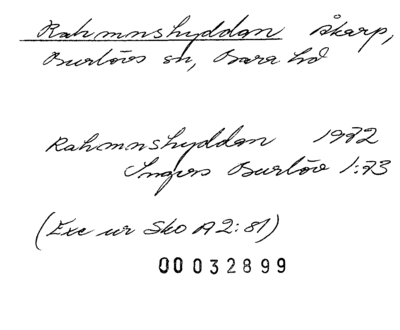 Rahmnshyddan Åkarp,
Burlövs sn, Bara hd
Rahmnshyddan 1972
Ingvers Burlöv 1:73
(Exc ur Sko A2:81)
00032899